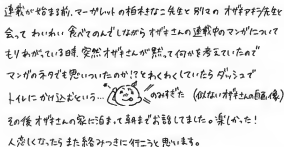 連載が始まる前、マーガレットの柏木さなこ先生と別マのオザキアキラ先生と
会って わいわい 食べてのんでしながらオザキさんの連載中のマンガについて
もりあがっている時、突然オザキさんが黙って何かを考えていたので
マンガのネタでも思いついたのか!?とわくわくしていたらダッシュで
トイレにかけ込むという… のみすぎた (似ないオザキさんの自画像)
その後オザキさんの家に泊まって朝までお話してました。楽しかった!
人恋しくなったらまた絡みつきに行こうと思います。